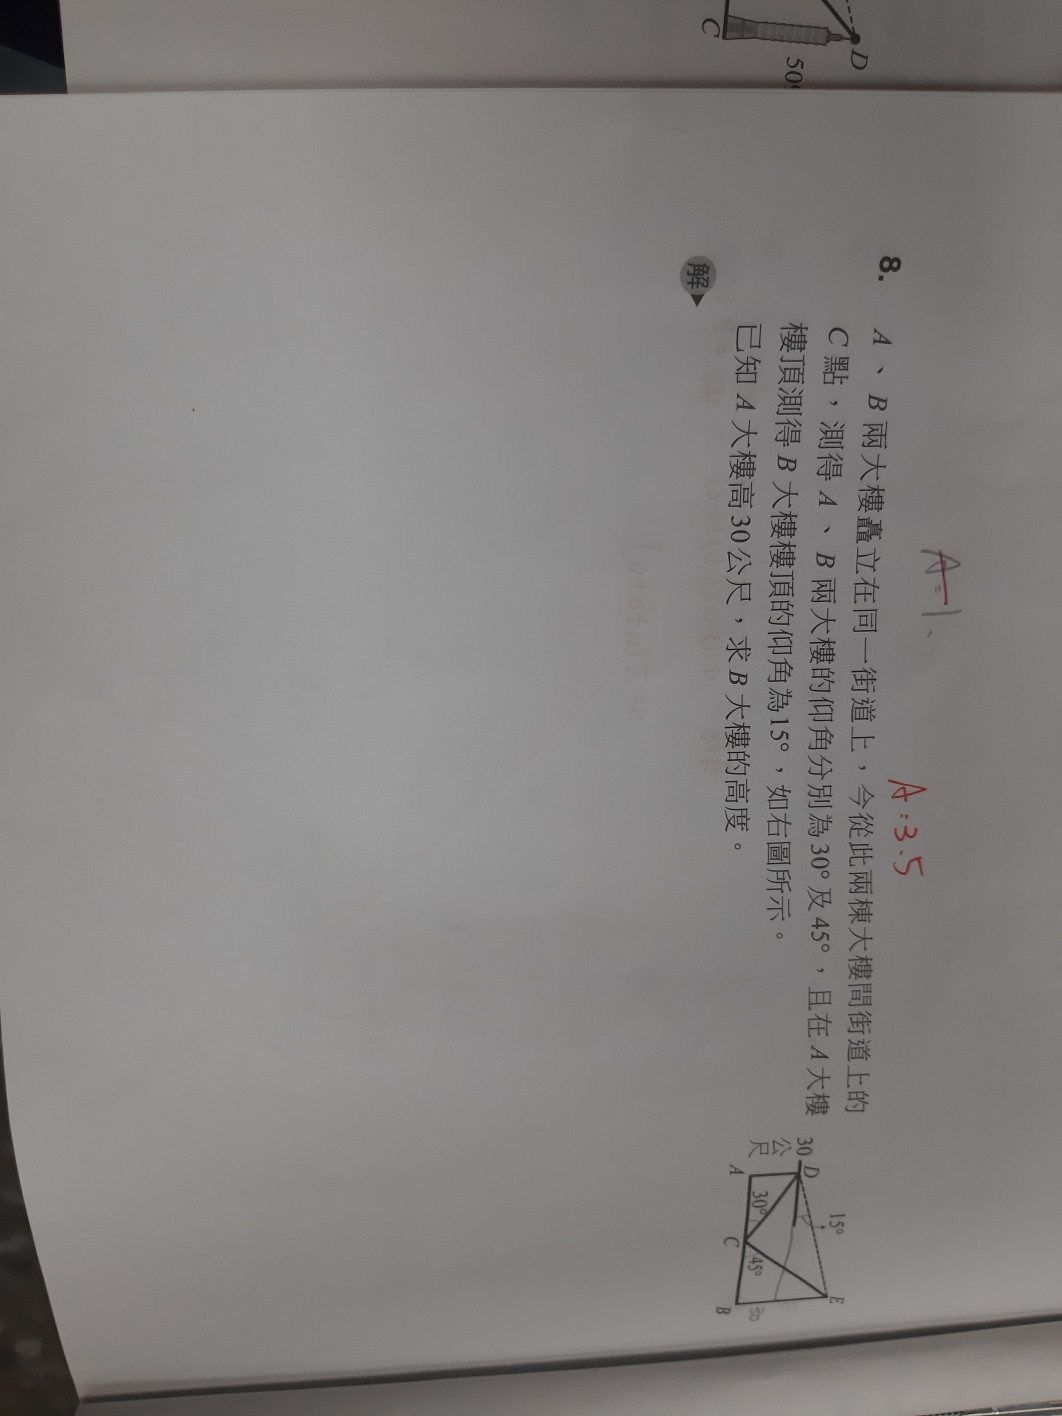 C
D
50°
A=1、
A:3.5
8. A、B 兩大樓矗立在同一街道上，今從此兩棟大樓間街道上的
C 點，測得 A、B 兩大樓的仰角分別為 30° 及 45°，且在 A 大樓
樓頂測得 B 大樓樓頂的仰角為 15°，如右圖所示。
已知 A 大樓高 30 公尺，求 B 大樓的高度。
解
15°
D
E
30
公
尺
30°
45°
30
A
C
B